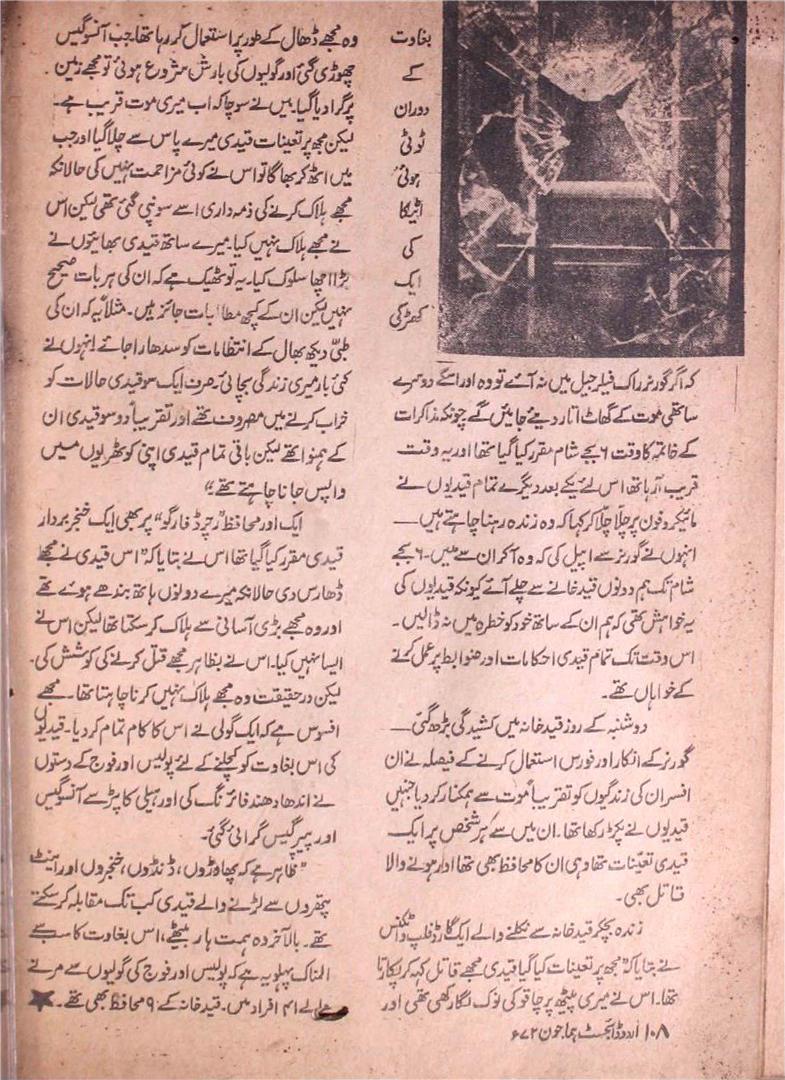 بغاوت
کے
دوران
ٹوٹی
ہوئی
اٹیکا
کی
ایک
کھڑکی
کہ اگر گورنر راک فیلر جیل میں نہ آئے تو وہ اور اسکے دوسرے
ساتھی موت کے گھاٹ اتار دیئے جائیں گے چونکہ مذاکرات
کے خاتمہ کا وقت ۶ بجے شام مقرر کیا گیا تھا اور یہ وقت
قریب آرہا تھا اس لئے یکے بعد دیگرے تمام قیدیوں نے
مائیکروفون پر چلّا چلّا کر کہا کہ وہ زندہ رہنا چاہتے ہیں —
انہوں نے گورنر سے اپیل کی کہ وہ آکر ان سے ملیں۔ ۶ بجے
شام تک ہم دونوں قید خانے سے چلے آئے کیونکہ قیدیوں کی
یہ خواہش تھی کہ ہم ان کے ساتھ خود کو خطرہ میں نہ ڈالیں۔
اس وقت تک تمام قیدی احکامات اور ضوابط پر عمل کرنے
کے خواہاں تھے۔
دوشنبہ کے روز قید خانہ میں کشیدگی بڑھ گئی —
گورنر کے انکار اور فورس استعمال کرنے کے فیصلہ نے ان
افسران کی زندگیوں کو تقریباً موت سے ہمکنار کر دیا جنہیں
قیدیوں نے پکڑ رکھا تھا۔ ان میں سے ہر شخص پر ایک
قیدی تعینات تھا وہی ان کا محافظ بھی تھا اور ہونے والا
قاتل بھی۔
زندہ بچکر قید خانہ سے نکلنے والے ایک گارڈ فلپ واٹکنس
نے بتایا کہ "مجھ پر تعینات کیا گیا قیدی مجھے قاتل کہہ کر پکارتا
تھا۔ اس نے میری پیٹھ پر چاقو کی نوک لگا رکھی تھی اور
وہ مجھے ڈھال کے طور پر استعمال کر رہا تھا۔ جب آنسو گیس
چھوڑی گئی اور گولیوں کی بارش شروع ہوئی تو مجھے زمین
پر گرا دیا گیا۔ میں نے سوچا کہ اب میری موت قریب ہے۔
لیکن مجھ پر تعینات قیدی میرے پاس سے چلا گیا اور جب
میں اٹھ کر بھاگا تو اس نے کوئی مزاحمت نہیں کی حالانکہ
مجھے ہلاک کرنے کی ذمہ داری اسے سونپی گئی تھی لیکن اس
نے مجھے ہلاک نہیں کیا۔ میرے ساتھ قیدی بھائیوں نے
بڑا اچھا سلوک کیا۔ یہ تو ٹھیک ہے کہ ان کی ہر بات صحیح
نہیں لیکن ان کے کچھ مطالبات جائز ہیں۔ مثلاً یہ کہ ان کی
طبّی دیکھ بھال کے انتظامات کو سدھارا جائے انہوں نے
کئی بار میری زندگی بچائی۔ صرف ایک سو قیدی حالات کو
خراب کرنے میں مصروف تھے اور تقریباً دو سو قیدی ان
کے ہمنوا تھے لیکن باقی تمام قیدی اپنی کوٹھریوں میں
واپس جانا چاہتے تھے"
ایک اور محافظ "رچرڈ فارگو" پر بھی ایک خنجر بردار
قیدی مقرر کیا گیا تھا اس نے بتایا کہ "اس قیدی نے مجھے
ڈھارس دی حالانکہ میرے دونوں ہاتھ بندھے ہوئے تھے
اور وہ مجھے بڑی آسانی سے ہلاک کر سکتا تھا لیکن اس نے
ایسا نہیں کیا۔ اس نے بظاہر مجھے قتل کرنے کی کوشش کی۔
لیکن در حقیقت وہ مجھے ہلاک نہیں کرنا چاہتا تھا۔ مجھے
افسوس ہے کہ ایک گولی نے اس کا کام تمام کر دیا۔ قیدیوں
کی اس بغاوت کو کچلنے کے لئے پولیس اور فوج کے دستوں
نے اندھا دھند فائرنگ کی اور ہیلی کاپٹر سے آنسو گیس
اور پیپر گیس گرائی گئی۔
"ظاہر ہے کہ پھاوڑوں، ڈنڈوں، خنجروں اور اینٹ
پتھروں سے لڑنے والے قیدی کب تک مقابلہ کر سکتے
تھے۔ بالآخر وہ ہمت ہار بیٹھے، اس بغاوت کا سب سے
المناک پہلو یہ ہے کہ پولیس اور فوج کی گولیوں سے مرنے
والے ۴۱ افراد میں۔ قید خانہ کے ۹ محافظ بھی تھے۔ ★
۱۰۸ اردو ڈائجسٹ ہما جون ۷۲ء